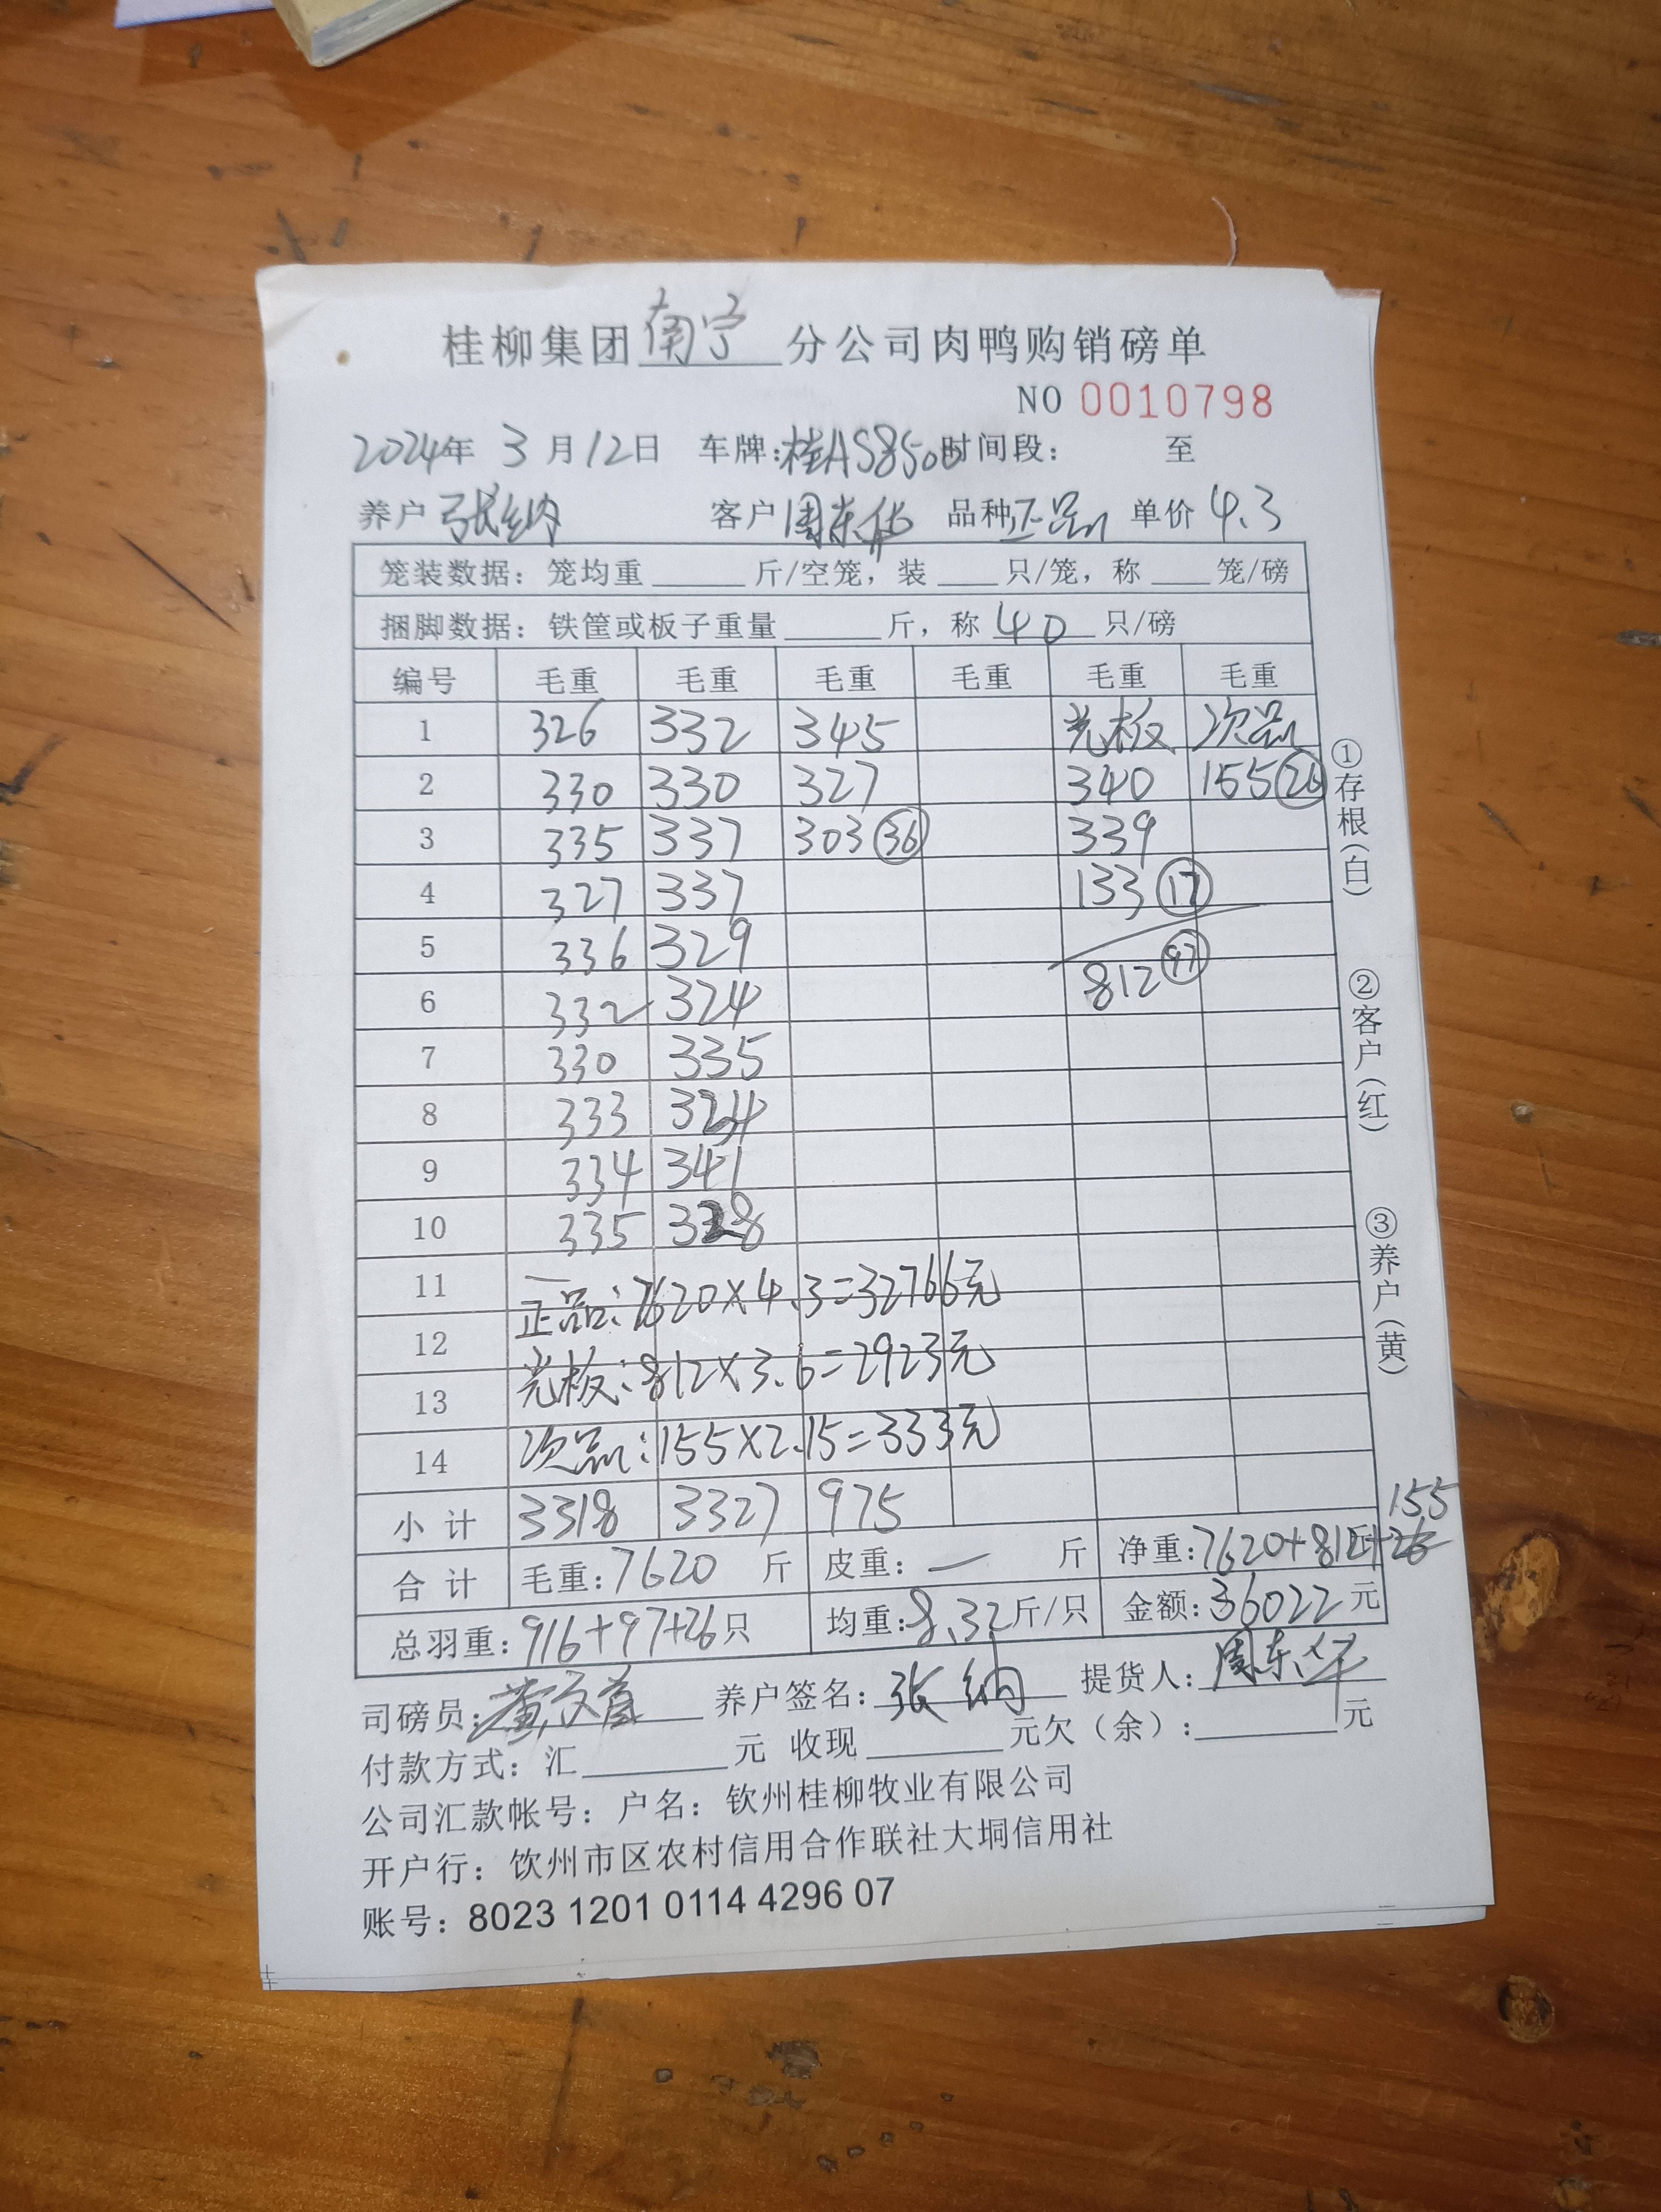 桂柳集团南宁分公司肉鸭购销磅单
NO 0010798
2024年 3月12日 车牌:桂AS8500 时间段: 至
养户 张纳 客户 周东华 品种 正品 单价 4.3
笼装数据: 笼均重 斤/空笼, 装 只/笼, 称 笼/磅
捆脚数据: 铁筐或板子重量 斤, 称 40 只/磅
编号 毛重 毛重 毛重 毛重 毛重 毛重
1 326 332 345 光板 次品
2 330 330 327 340 155 26
3 335 337 303 36 339
4 327 337 133 17
5 336 329
6 332 324 812 97
7 330 335
8 333 324
9 334 341
10 335 328
11 正品: 7620×4.3=32766元
12
13 光板: 812×3.6=2923元
14 次品: 155×2.15=333元
小计 3318 3327 975
155
合计 毛重: 7620 斤 皮重: — 斤 净重: 7620+812+26
总羽重: 916+97+26只 均重: 8.32斤/只 金额: 36022元
司磅员: 养户签名: 张纳 提货人: 周东华
付款方式: 汇 元 收现 元欠(余): 元
公司汇款帐号: 户名: 钦州桂柳牧业有限公司
开户行: 钦州市区农村信用合作联社大垌信用社
账号: 8023 1201 0114 4296 07
①存根(白) ②客户(红) ③养户(黄)